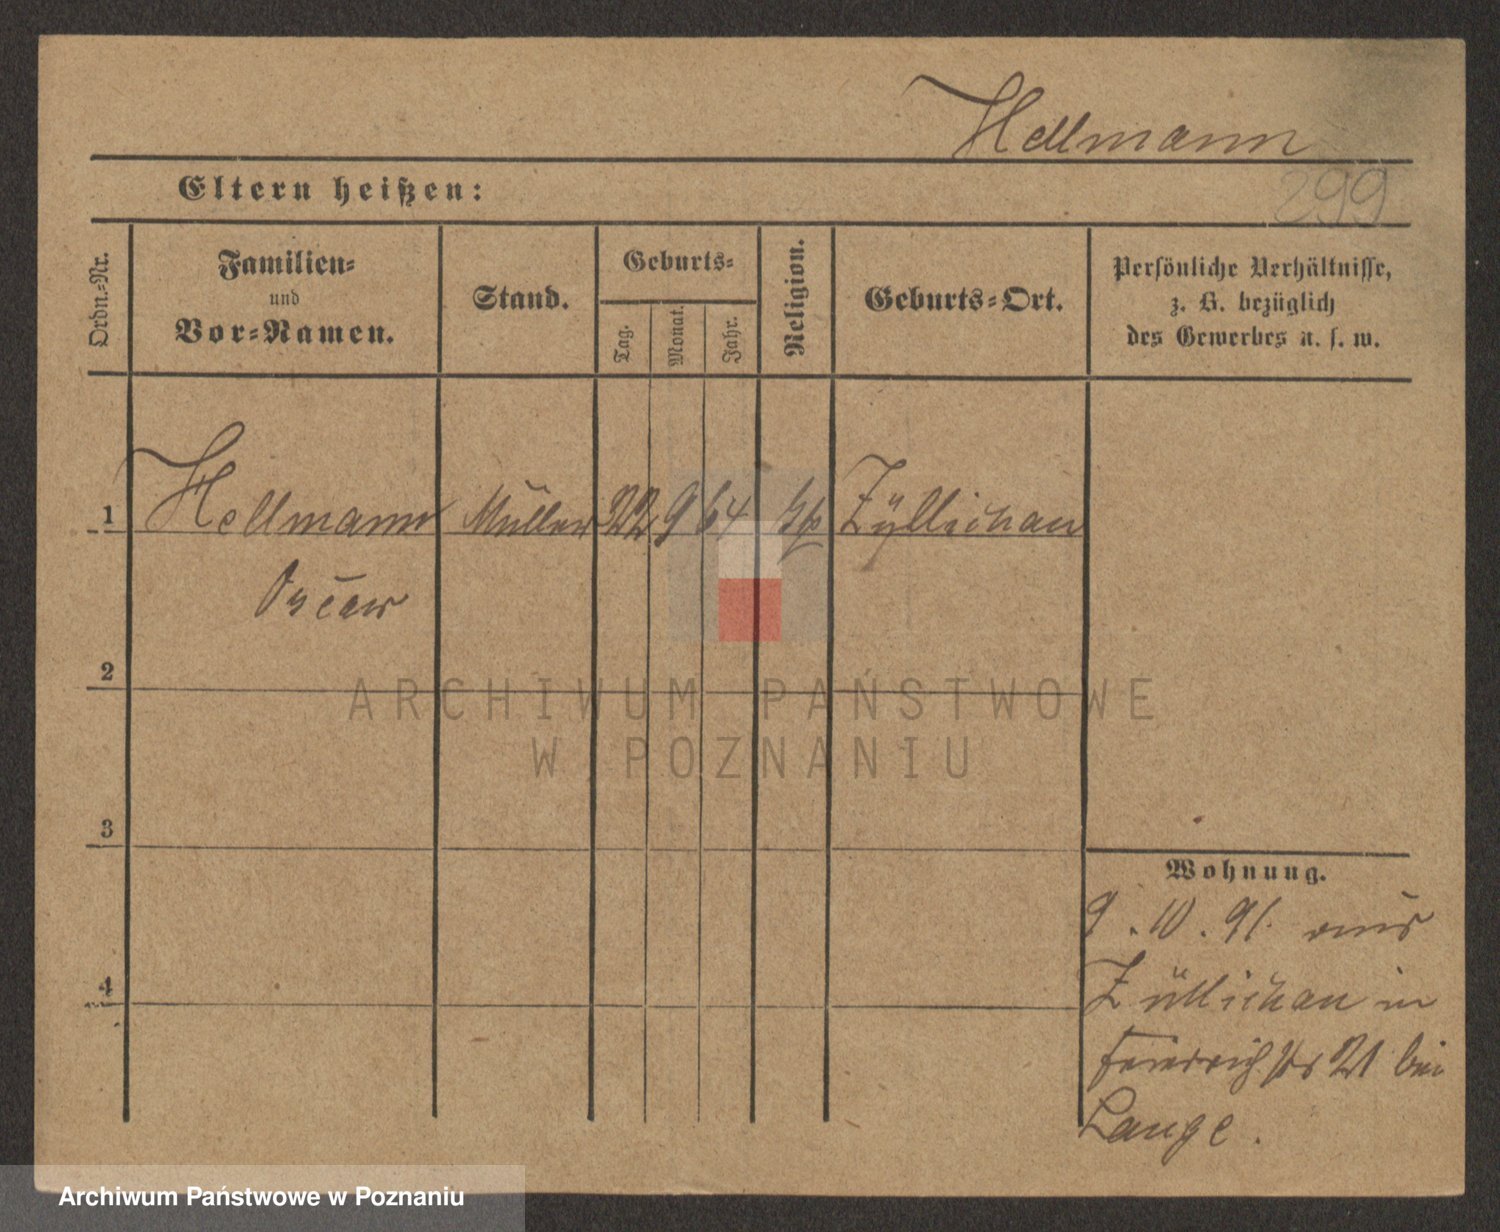 Hellmann
299
Eltern heißen:
Ordn.-Nr.
Familien-
und
Vor-Namen.
Stand.
Geburts-
Tag.
Monat.
Jahr.
Religion.
Geburts-Ort.
Persönliche Verhältnisse,
z. B. bezüglich
des Gewerbes u. s. w.
1 Hellmann Müller 22 9 64 Züllichau
Oscar
2
3
4
Wohnung.
9. 10. 91. aus
Züllichau in
Friedrichstr 21 bei
Lange.
ARCHIWUM PAŃSTWOWE
W POZNANIU
Archiwum Państwowe w Poznaniu